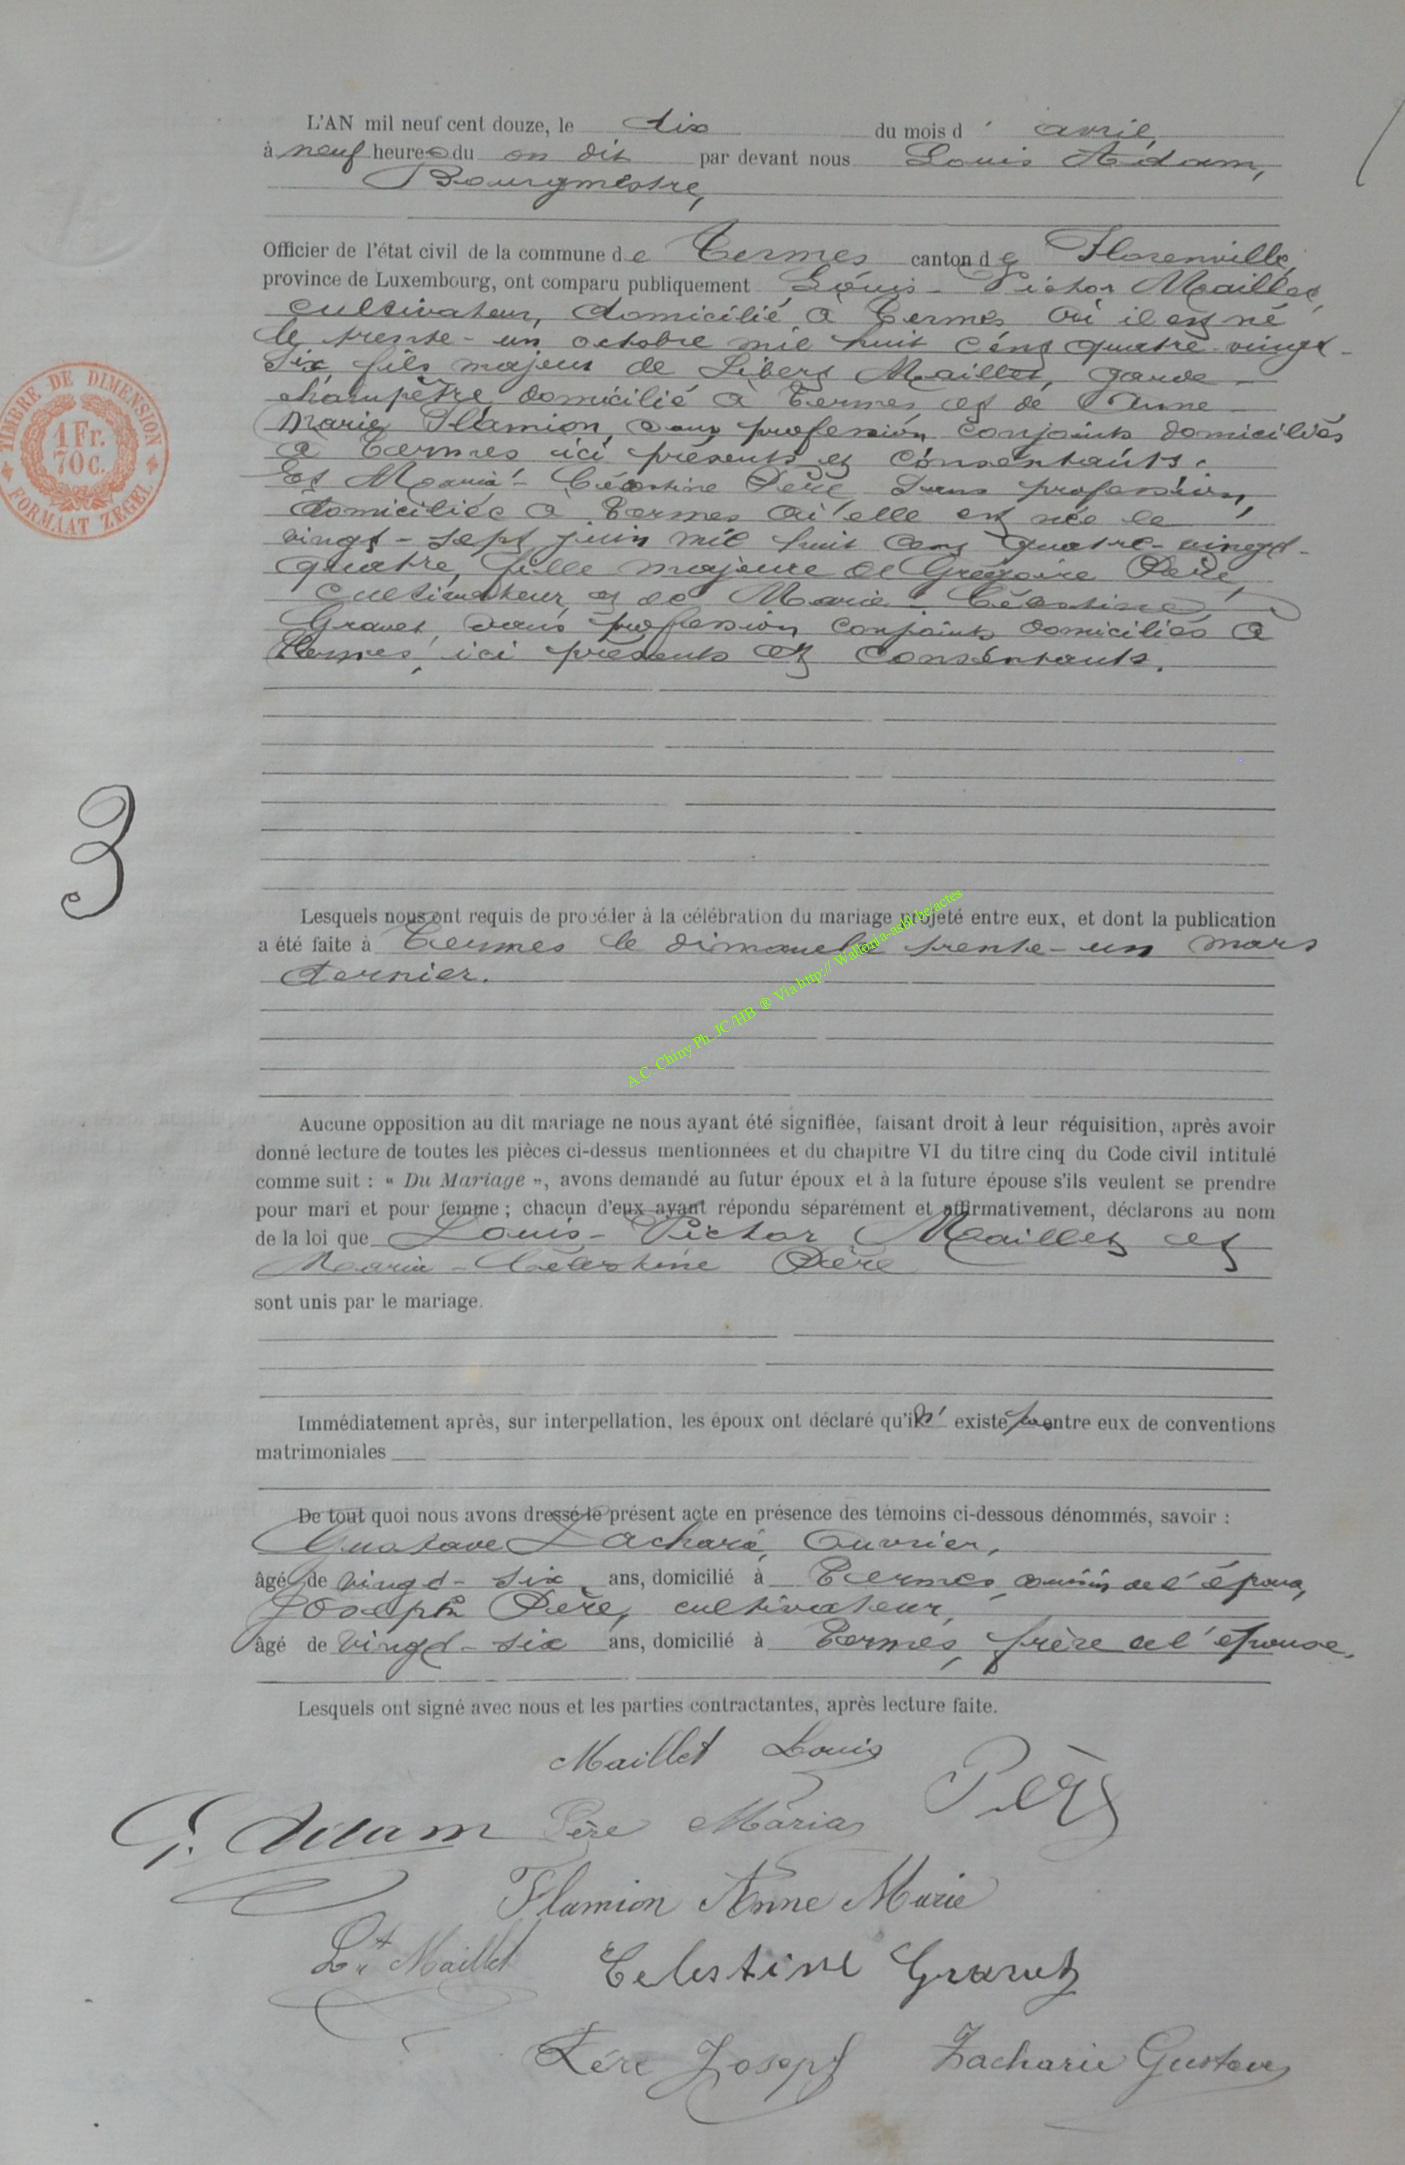 L'AN mil neuf cent douze, le dix du mois d' avril,
à neuf heures du dit par devant nous Louis Adam,
Bourgmestre,
Officier de l'état civil de la commune de Termes canton de Florenville,
province de Luxembourg, ont comparu publiquement Louis-Victor Maillet,
cultivateur, domicilié à Termes où il est né
le trente-un octobre mil huit cent quatre-vingt-
six fils majeur de Libert Maillet, garde-
champêtre domicilié à Termes et de Anne
Marie Flamion, sans profession conjoints domiciliés
à Termes ici présents et consentants.
Et Maria-Célestine Père, sans profession,
domiciliée à Termes où elle est née le
vingt-sept juin mil huit cent quatre-vingt-
quatre, fille majeure de Grégoire Père,
cultivateur et de Marie-Célestine
Gravet, sans profession conjoints domiciliés à
Termes, ici présents et consentants.
TIMBRE DE DIMENSION
1 Fr.
70 c.
FORMAAT ZEGEL
3
Lesquels nous ont requis de procéder à la célébration du mariage projeté entre eux, et dont la publication
a été faite à Termes le dimanche trente-un mars
dernier.
A.C. Chiny Ph. JC/HB ® Via http:// Wallonia-asbl.be/actes
Aucune opposition au dit mariage ne nous ayant été signifiée, faisant droit à leur réquisition, après avoir
donné lecture de toutes les pièces ci-dessus mentionnées et du chapitre VI du titre cinq du Code civil intitulé
comme suit : « Du Mariage », avons demandé au futur époux et à la future épouse s'ils veulent se prendre
pour mari et pour femme ; chacun d'eux ayant répondu séparément et affirmativement, déclarons au nom
de la loi que Louis-Victor Maillet et
Maria-Célestine Père
sont unis par le mariage.
Immédiatement après, sur interpellation, les époux ont déclaré qu'il n' existe pas entre eux de conventions
matrimoniales
De tout quoi nous avons dressé le présent acte en présence des témoins ci-dessous dénommés, savoir :
Gustave Zacharie, Ouvrier,
âgé de vingt-six ans, domicilié à Termes, cousin de l'époux,
Joseph Père, cultivateur,
âgé de vingt-six ans, domicilié à Termes, frère de l'épouse.
Lesquels ont signé avec nous et les parties contractantes, après lecture faite.
Maillet Louis
Père
Adam Père Maria
Flamion Anne Marie
Lt Maillet Celestine Gravet
Père Joseph Zacharie Gustave